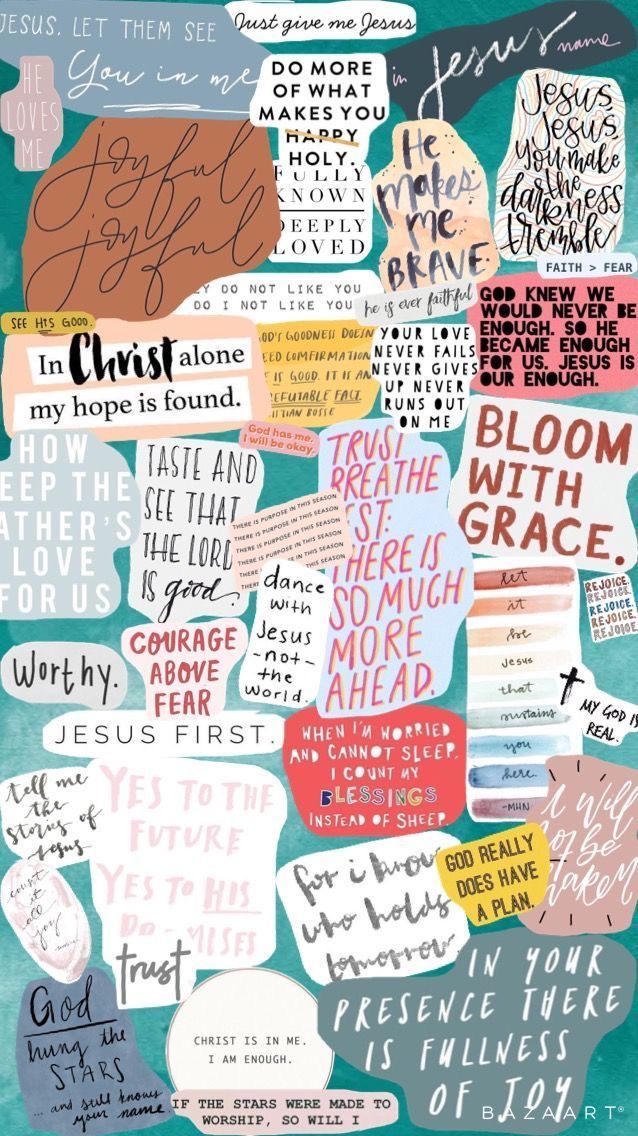 JESUS, LET THEM SEE
You in me
Just give me Jesus
in Jesus name
HE
LOVES
ME
DO MORE
OF WHAT
MAKES YOU
HAPPY
HOLY.
joyful
joyful
FULLY
KNOWN
DEEPLY
LOVED
He
makes
me
BRAVE
Jesus,
Jesus,
you make
the
darkness
tremble
FAITH > FEAR
DO NOT LIKE YOU
DO I NOT LIKE YOU
he is ever faithful
GOD KNEW WE
WOULD NEVER BE
ENOUGH. SO HE
BECAME ENOUGH
FOR US. JESUS IS
OUR ENOUGH.
SEE HIS GOOD.
In Christ alone
my hope is found.
GOD'S GOODNESS DOESN
EED COMFIRMATION
IS GOOD. IT IS AN
REFUTABLE FACT
BOSSE
YOUR LOVE
NEVER FAILS
NEVER GIVES
UP NEVER
RUNS OUT
ON ME
God has me.
I will be okay.
HOW
EEP THE
ATHER'S
LOVE
FOR US
TASTE AND
SEE THAT
THE LORD
IS good.
THERE IS PURPOSE IN THIS SEASON
THERE IS PURPOSE IN THIS SEASON
THERE IS PURPOSE IN THIS SEASON
THERE IS PURPOSE IN THIS SEASON
THERE IN THIS SEASON
THER
TRUST
BREATHE
ST:
HERE IS
SO MUCH
MORE
AHEAD.
BLOOM
WITH
GRACE.
dance
with
Jesus
-not-
the
world.
let
it
be
Jesus
that
sustains
you
here.
-MHN
REJOICE.
REJOICE.
REJOICE.
REJOICE.
REJOICE.
Worthy.
COURAGE
ABOVE
FEAR
MY GOD IS
REAL.
JESUS FIRST.
WHEN I'M WORRIED
AND CANNOT SLEEP,
I COUNT MY
BLESSINGS
INSTEAD OF SHEEP.
tell me
the
stories of
Jesus
YES TO THE
FUTURE
YES TO HIS
PROMISES
I will
not be
shaken
count
it
all
joy
for i know
who holds
tomorrow
GOD REALLY
DOES HAVE
A PLAN.
trust
God
hung the
STARS
... and still knows
your name.
CHRIST IS IN ME.
I AM ENOUGH.
IN YOUR
PRESENCE THERE
IS FULLNESS
OF JOY.
IF THE STARS WERE MADE TO
WORSHIP, SO WILL I
BAZAART®